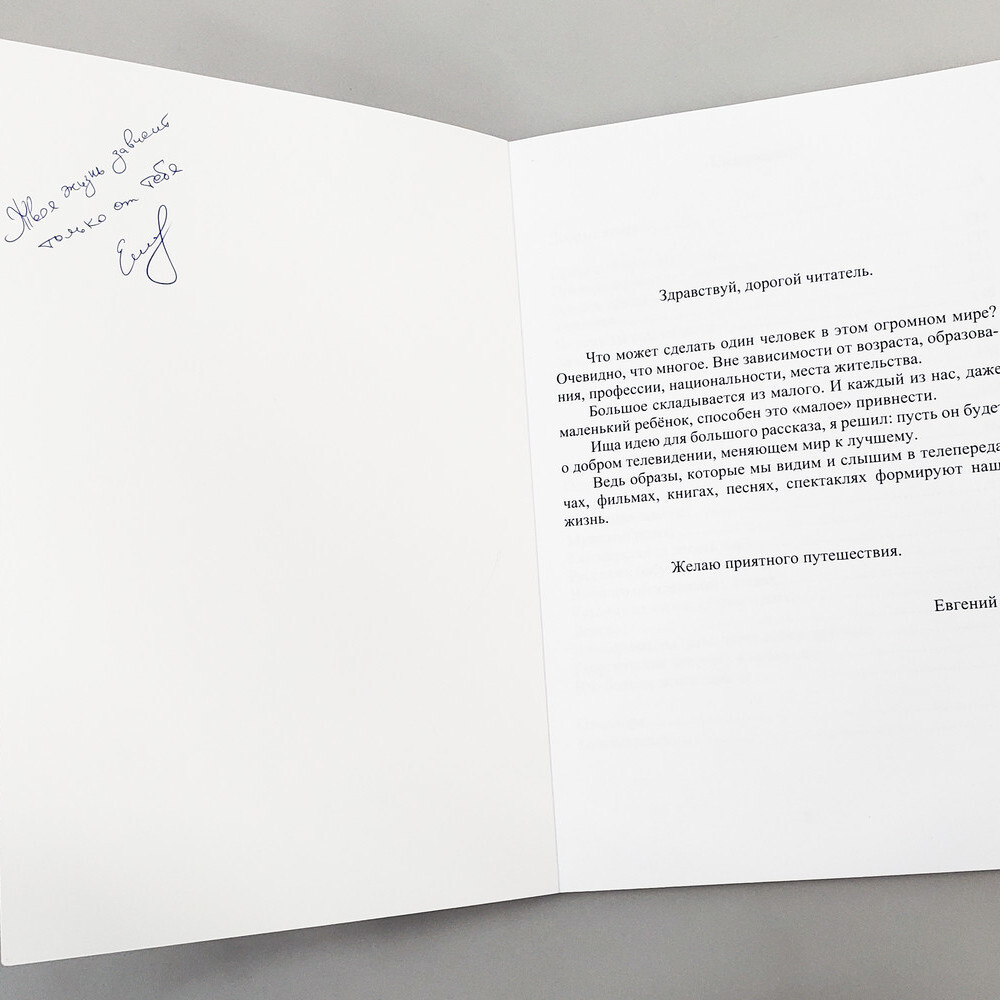 Твоя жизнь зависит
только от тебя
Здравствуй, дорогой читатель.
Что может сделать один человек в этом огромном мире?
Очевидно, что многое. Вне зависимости от возраста, образова-
ния, профессии, национальности, места жительства.
Большое складывается из малого. И каждый из нас, даже
маленький ребёнок, способен это «малое» привнести.
Ища идею для большого рассказа, я решил: пусть он будет
о добром телевидении, меняющем мир к лучшему.
Ведь образы, которые мы видим и слышим в телепереда-
чах, фильмах, книгах, песнях, спектаклях формируют наш
жизнь.
Желаю приятного путешествия.
Евгений